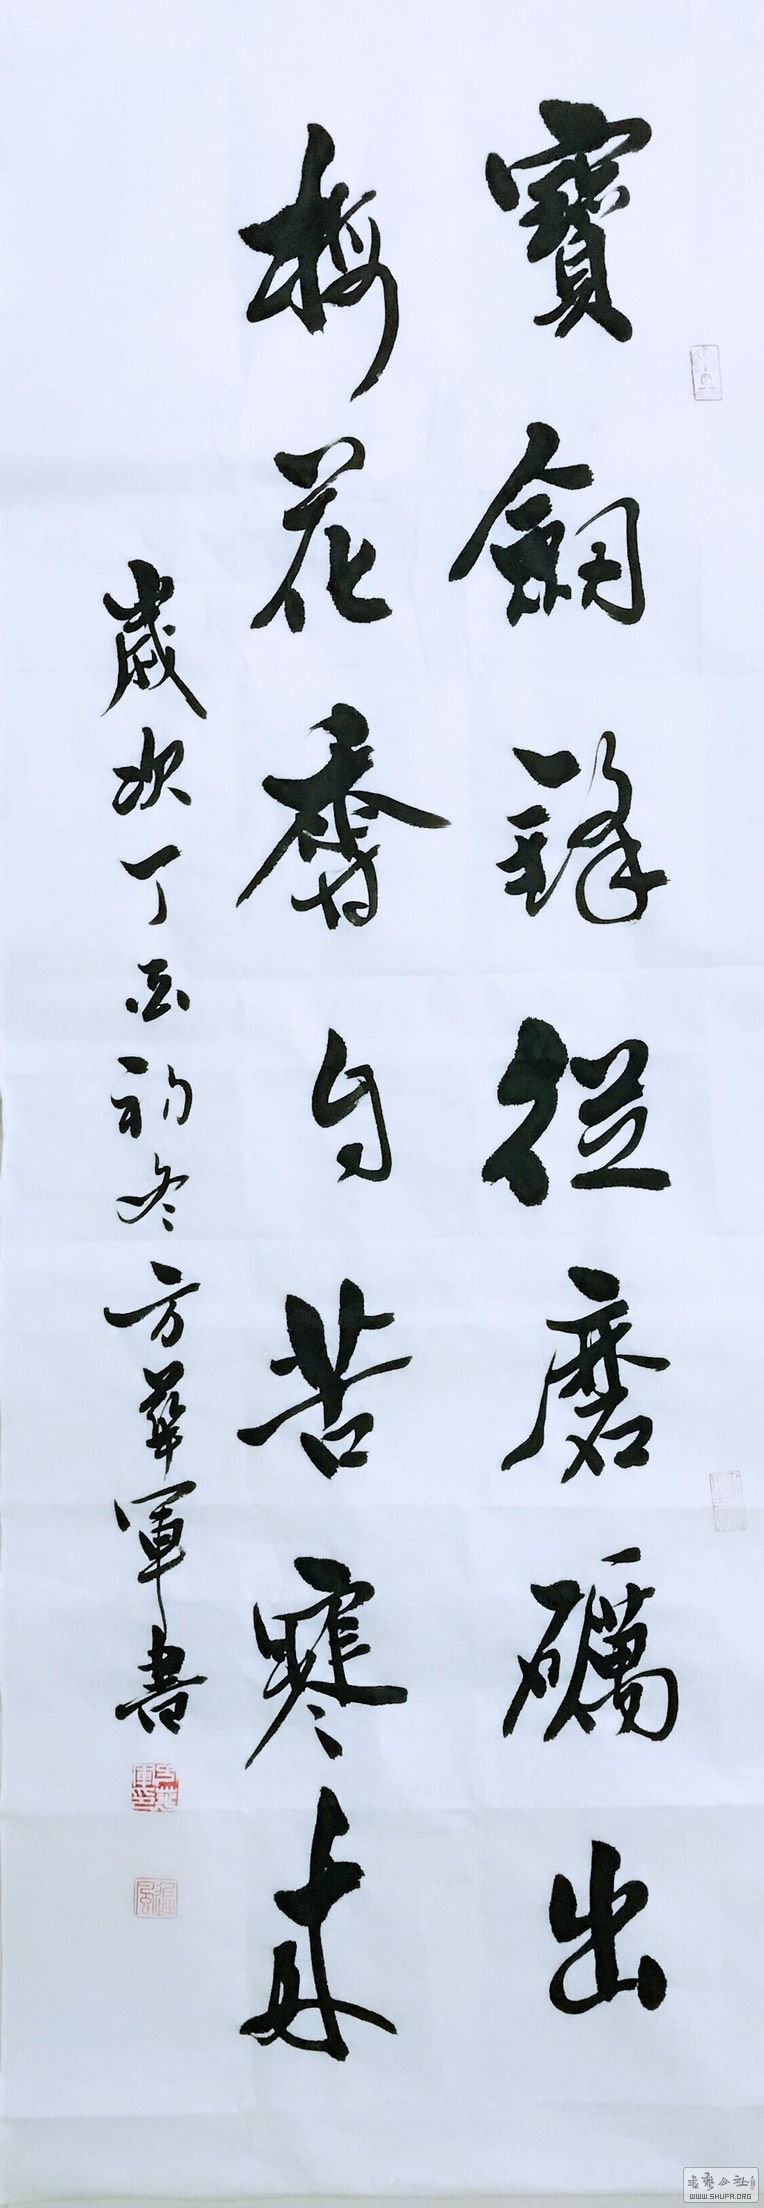 寶劍鋒從磨礪出
梅花香自苦寒來
歲次丁酉初冬方華軍書
書藝公社
WWW.SHUFA.ORG